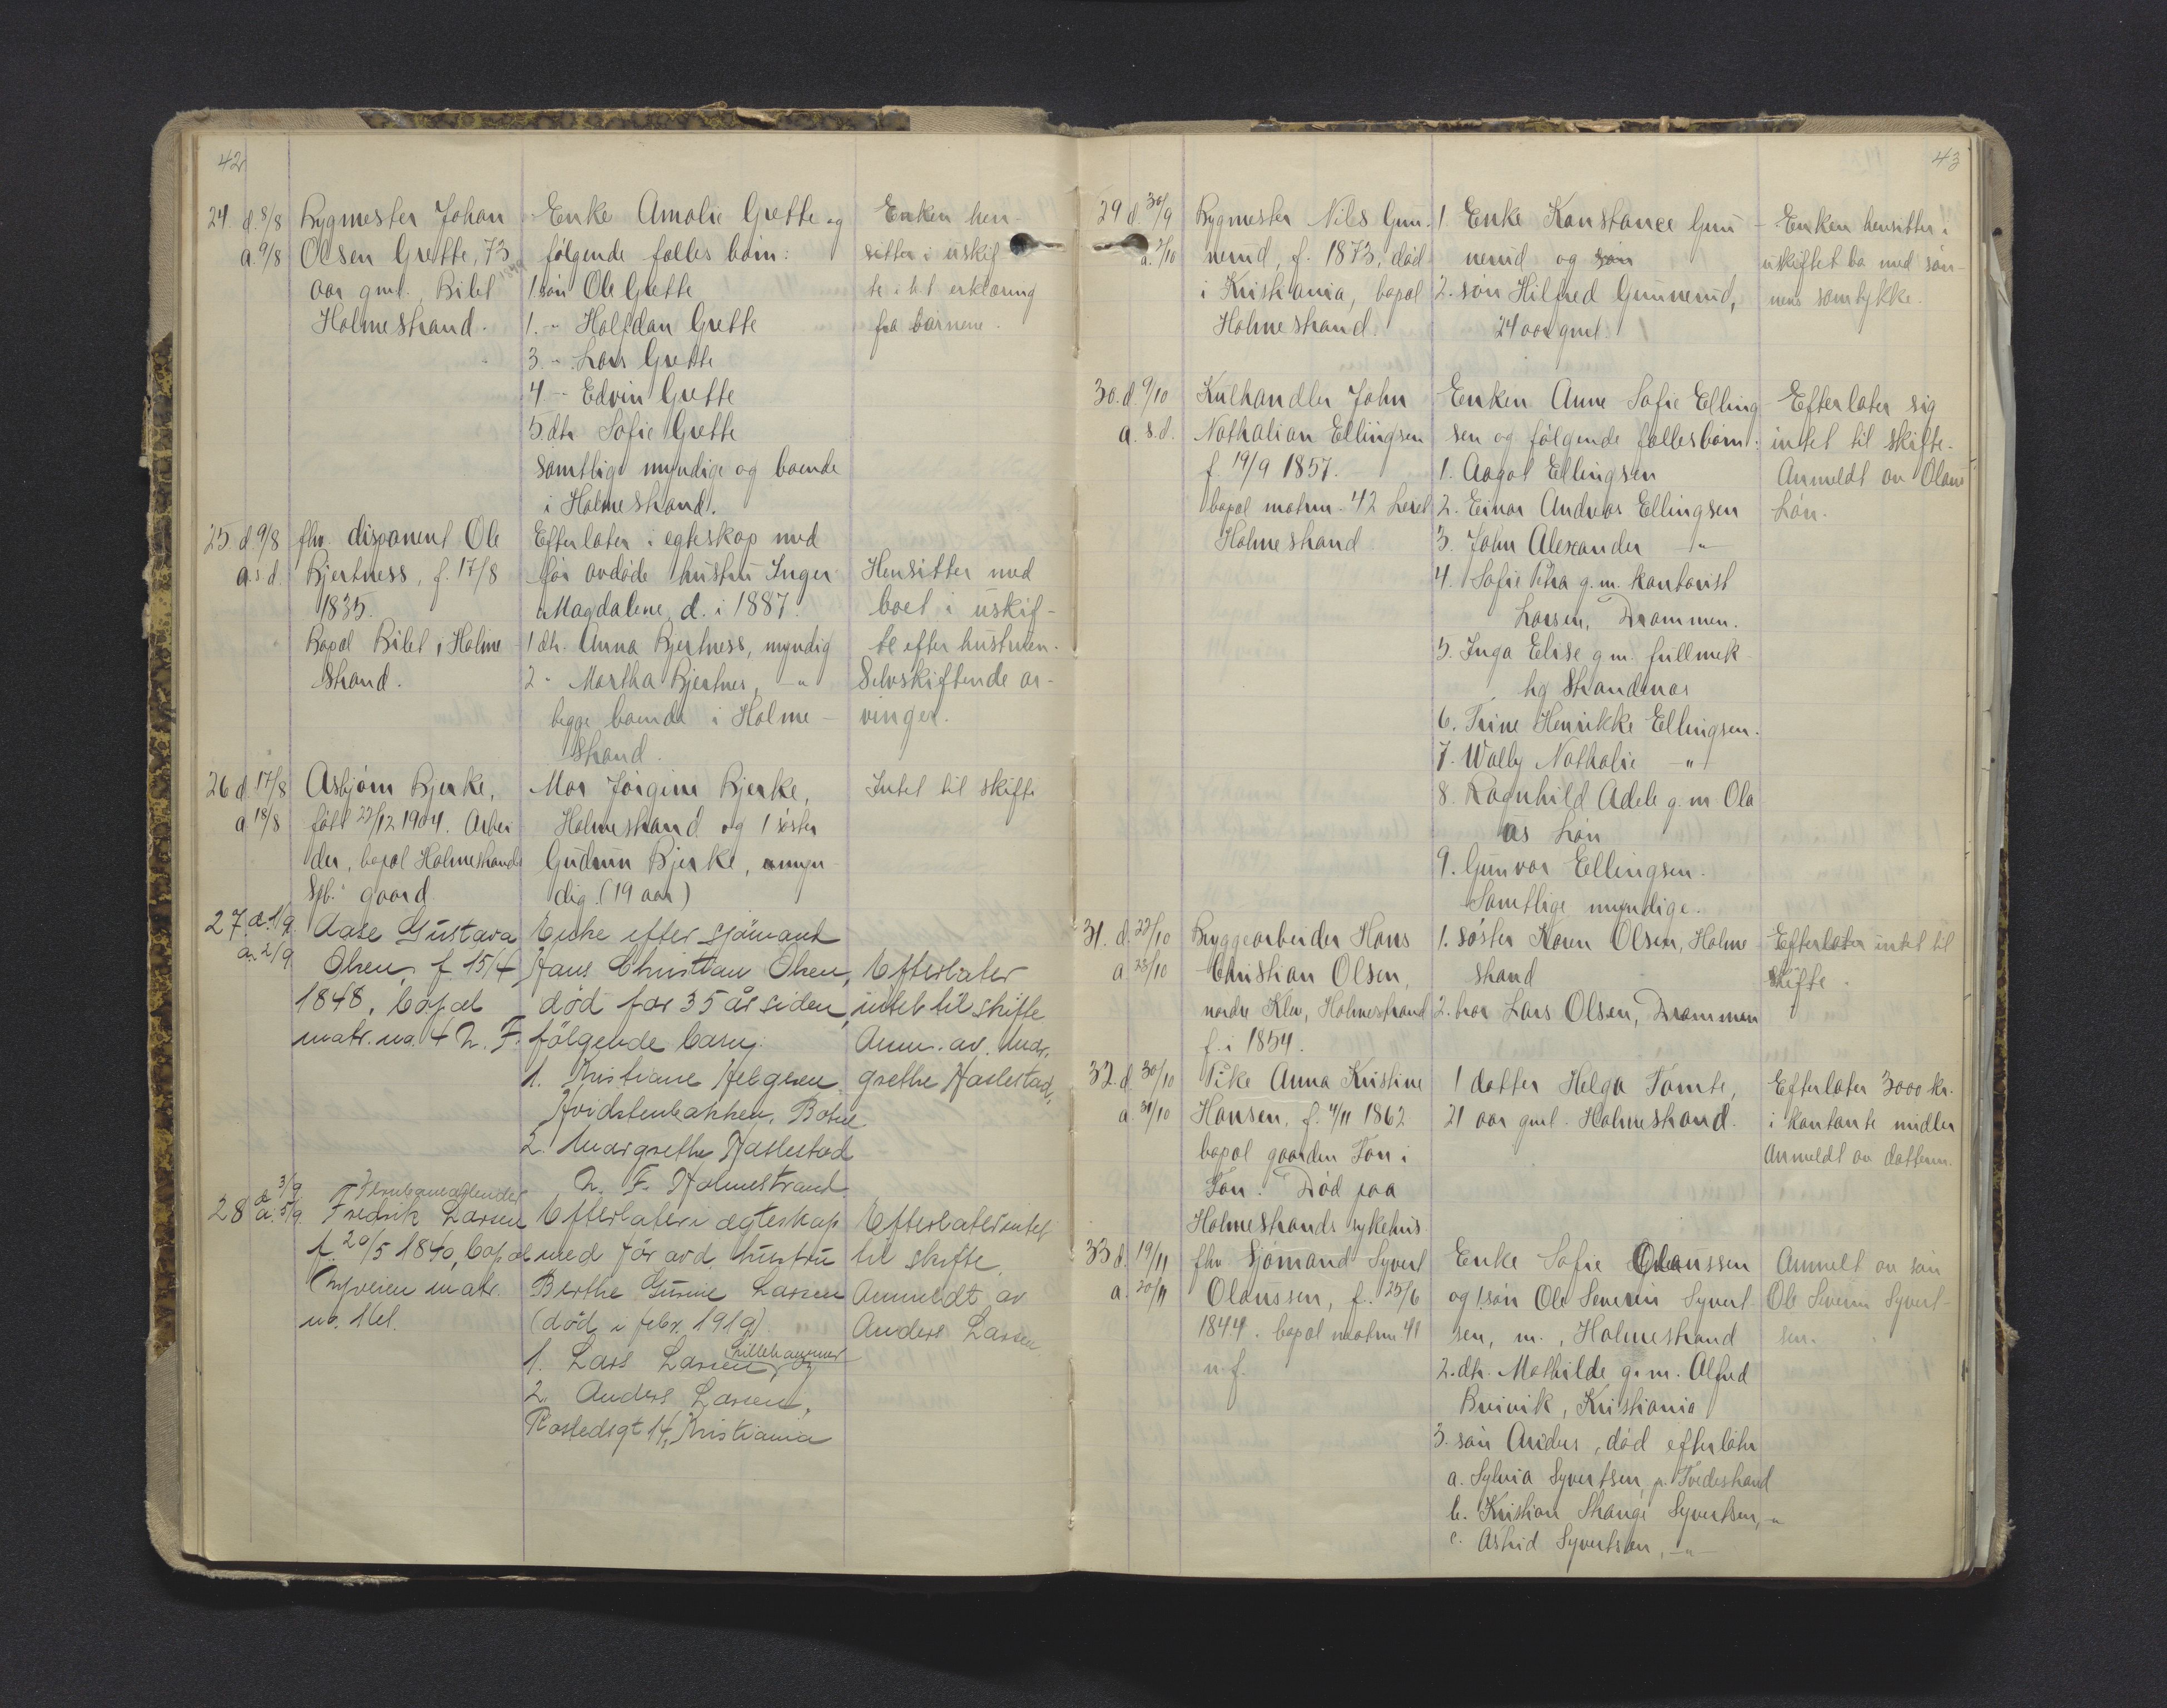 42
24. d. 8/8 Bygmester Johan Enke Amalie Grette og Enken hen-
a. 9/8 Olsen Grette, 73 følgende felles børn: sitter i uskif-
aar gml. Bilet 1. søn Ole Grette te i h.t erklæring
Holmestrand. 1. " Halfdan Grette fra børnene.
3 " Lars Grette
4 " Edvin Grette
5. dtr Sofie Grette
samtlige myndige og boende
i Holmestrand.
25. d. 9/8 fhv. disponent Ole Efterlater i egteskap med
a. s d. Bjertness, f. 17/8 før avdøde hustru Inger Hensitter med
1835. Magdalene, d. i 1887 boet i uskif-
Bopæl Bilet i Holme- 1 dtr. Anna Bjertness, myndig te efter hustruen.
strand. 2 " Martha Bjertnes, - " Selvskiftende ar-
begge boende i Holme- vinger.
strand.
26 d. 17/8 Asbjørn Bjerke, Mor Jørgine Bjerke, Intet til skifte
a 18/8 født 23/12 1904. Arbei Holmestrand og 1 søster
der, bopæl Holmestrands Gudrun Bjerke, umyn-
Spb. gaard dig. (19 aar)
27. d. 1/9. Aase Gustava Enke efter sjömand
a. 2/9 Olsen, f. 15/4 Hans Christian Olsen, Efterlater
1848, bopæl död for 35 år siden, intet til skifte
matr. no. 4 N. F. følgende barn: Anm. av. Mar-
1. Kristiane Helgesen grethe Haslestad.
Hvidstenbakken, Botne
2. Margrethe Haslestad
N. F. Holmestrand.
d 3/9 Jernbanearbeider
28 a. 5/9. Fredrik Larsen Efterlater i ægteskap Efterlater intet
f. 20/5 1840, bopæl med för avd. hustru til skifte.
Nyveien matr. Berthe Gurine Larsen Anmeldt av
no. 161. (död i febr. 1919) Anders Larsen
1. Lars Larsen, Lillehammer og
2. Anders Larsen,
Rostedsgt 14, Kristiania
43
29 d. 30/9 Bygmester Nils Gun- 1. Enke Konstance Gun- Enken hensitter i
a. 2/10 nerud, f. 1873, død nerud og søn uskiftet bo med søn-
i Kristiania, bopæl 2. søn Hilfred Gunnerud, nens samtykke.
Holmestrand. 24 aar gml.
30. d. 9/10 Kulhandler John Enken Anne Sofie Elling Efterlater sig
a. s. d. Nathalian Ellingsen sen og følgende fellesbørn: intet til skifte.
f. 19/9 1857. 1. Aagot Ellingsen Anmeldt av Olaus
bopæl matrnr. 42 Leret 2. Einar Andreas Ellingsen Løn.
Holmestrand 3. John Alexander - " -
4. Sofie Thea g. m. kontorist
Larsen, Drammen.
5. Inga Elise g m. fullmek-
tig Strandmar
6. Trine Henrikke Ellingsen.
7. Wally Nathalie - " -
8. Ragnhild Adele g. m. Ola
us Løn
9. Gunvor Ellingsen.
Samtlige myndige.
31. d. 22/10 Bryggearbeider Hans 1. søster Karen Olsen, Holme Efterlater intet til
a 23/10 Christian Olsen, strand skifte.
nordre Klev, Holmestrand 2. bror Lars Olsen, Drammen
f. i 1854.
32. d. 30/10 Pike Anna Kristine 1 datter Helga Tømte, Efterlater 3000 kr.
a 31/10 Hansen, f. 4/11 1862 21 aar gml. Holmestrand. i kontante midler
bopæl gaarden Føn i Anmeldt av datteren.
Føn. Død paa
Holmestrands sykehus.
33 d. 19/11 fhv Sjømand Syvert Enke Sofie Olaussen Anmelt av søn
a. 20/11 Olaussen, f. 25/6 og 1. søn Ole Severin Syvert- Ole Severin Syvert-
1844. bopæl matrnr. 41 sen, m., Holmestrand sen.
n. f. 2. dtr. Mathilde g. m. Alfred
Breivik, Kristiania
3. søn Anders, død efterlater
a. Sylvia Syvertsen, p. Tvedestrand
b. Kristian Stange Syvertsen, "
c. Astrid Syvertsen, - " -